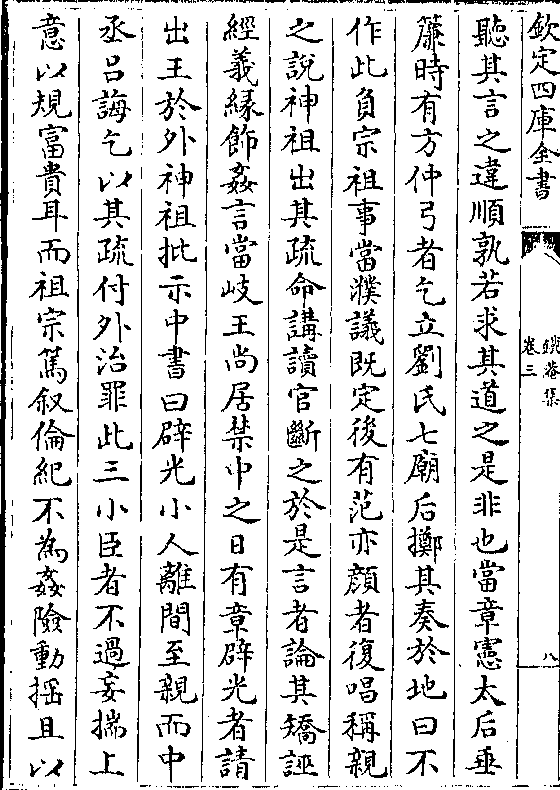 欽定四庫全書
卷三
八
聽其言之違順孰若求其道之是非也當章憲太后垂
簾時有方仲弓者乞立劉氏七廟后擲其奏於地曰不
作此負宗祖事當濮議既定後有范亦顔者復唱稱親
之說神祖出其疏命講讀官斷之於是言者論其矯誣
經義緣飾姦言當岐王尚居禁中之日有章辟光者請
出王於外神祖批示中書曰辟光小人離間至親而中
丞呂誨乞以其疏付外治罪此三小臣者不過妄揣上
意以規富貴耳而祖宗篤叙倫紀不為姦險動揺且以